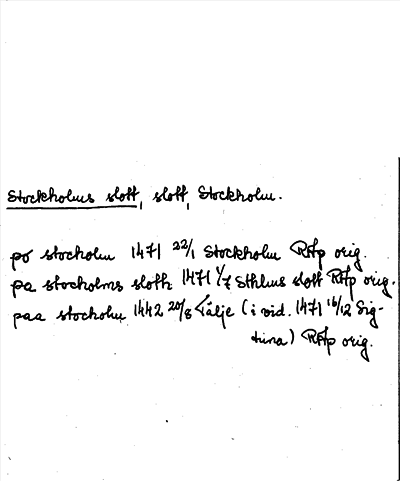 Stockholms slott, slott, Stockholm.
po stocholm 1471 22/1 Stockholm RAp orig.
pa stocholms sloth 1471 1/7 Sthlms slott RAp orig.
paa stocholm 1442 20/8 Tälje (i vid. 1471 16/12 Sig-
tuna) RAp orig.